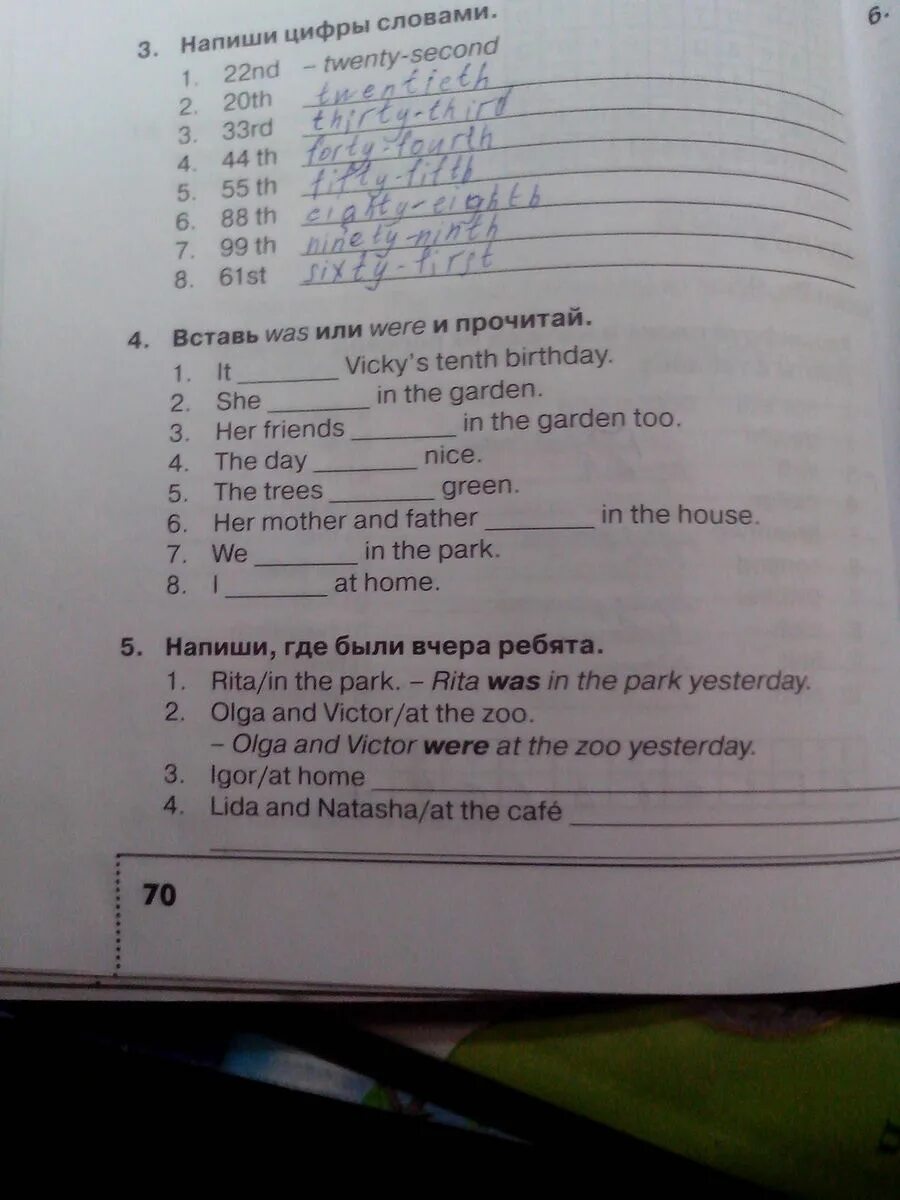 6.
3. Напиши цифры словами.
1. 22nd – twenty-second
2. 20th twentieth
3. 33rd thirty-third
4. 44 th forty-fourth
5. 55 th fifty-fifth
6. 88 th eighty-eighth
7. 99 th ninety-ninth
8. 61st sixty-first
4. Вставь was или were и прочитай.
1. It ________ Vicky's tenth birthday.
2. She ________ in the garden.
3. Her friends ________ in the garden too.
4. The day ________ nice.
5. The trees ________ green.
6. Her mother and father ________ in the house.
7. We ________ in the park.
8. I ________ at home.
5. Напиши, где были вчера ребята.
1. Rita/in the park. – Rita was in the park yesterday.
2. Olga and Victor/at the zoo.
– Olga and Victor were at the zoo yesterday.
3. Igor/at home ________
4. Lida and Natasha/at the café ________
70